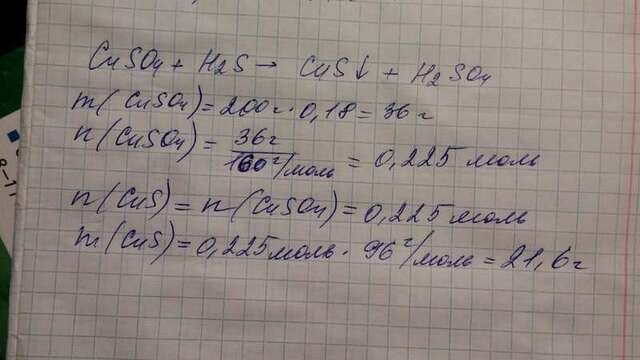 CuSO4 + H2S → CuS↓ + H2SO4
m(CuSO4) = 200г · 0,18 = 36г
n(CuSO4) = 36г / 160г/моль = 0,225 моль
n(CuS) = n(CuSO4) = 0,225 моль
m(CuS) = 0,225 моль · 96г/моль = 21,6г